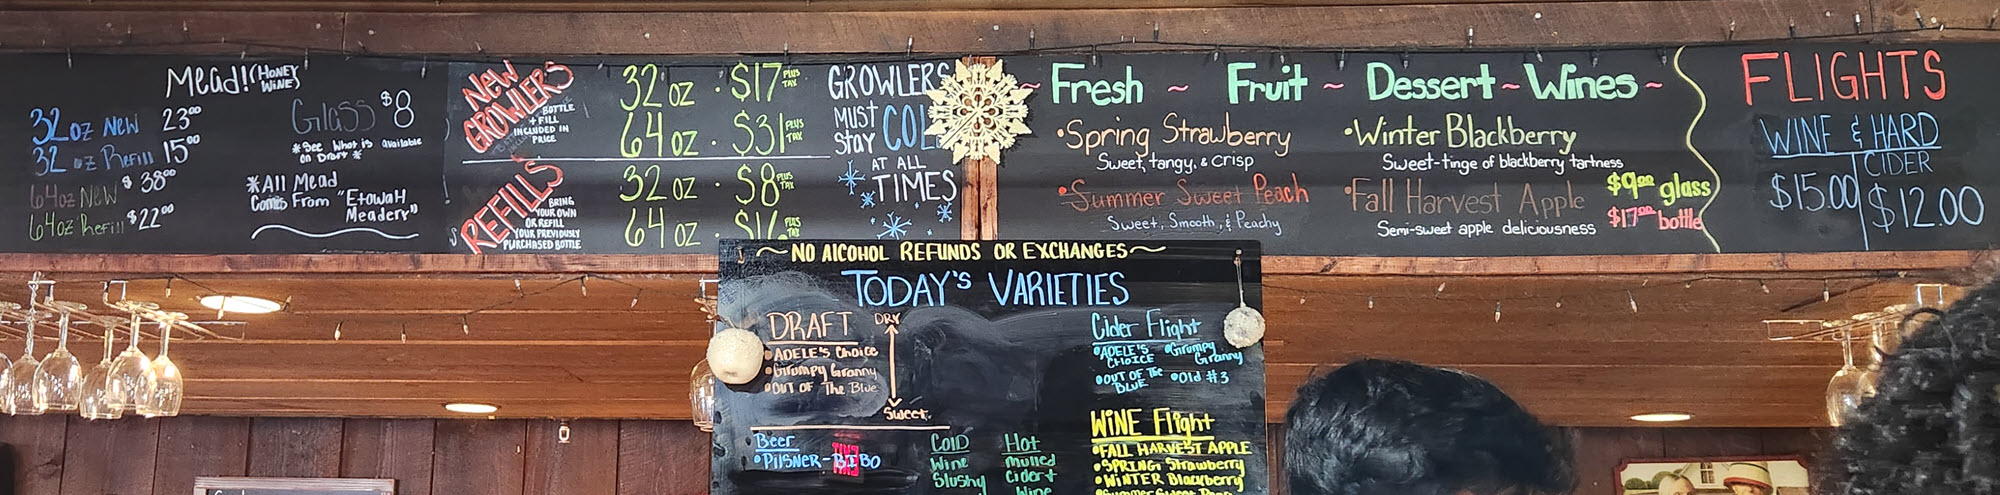 Mead! (Honey Wine)
32oz New 23⁰⁰
32oz Refill 15⁰⁰
64oz New $38⁰⁰
64oz Refill $22⁰⁰
Glass $8
*See What is available
on Draft *
*All Mead
Comes From "Etowah
Meadery"
NEW
GROWLERS
BOTTLE
+ FILL
INCLUDED IN
PRICE
32 oz · $17 PLUS TAX
64 oz · $31 PLUS TAX
REFILLS
BRING
YOUR OWN
OR REFILL
YOUR PREVIOUSLY
PURCHASED BOTTLE
32 oz · $8 PLUS TAX
64 oz · $16 PLUS TAX
GROWLERS
MUST
Stay COL
AT ALL
TIMES
~ Fresh ~ Fruit ~ Dessert ~ Wines ~
•Spring Strawberry
Sweet, tangy, & crisp
•Summer Sweet Peach
Sweet, Smooth, & Peachy
•Winter Blackberry
Sweet-tinge of blackberry tartness
•Fall Harvest Apple
Semi-sweet apple deliciousness
$9⁰⁰ glass
$17⁰⁰ bottle
FLIGHTS
WINE & HARD
CIDER
$15.00 $12.00
~NO ALCOHOL REFUNDS OR EXCHANGES~
TODAY'S VARIETIES
DRAFT
•ADELE'S Choice
•Grumpy Granny
•OUT OF The Blue
DRY
Sweet
Beer
•PILSNER-BIBO
Cold
Wine
Slushy
Hot
mulled
Cider +
Wine
Cider Flight
•ADELE'S CHOICE
•Grumpy Granny
•OUT OF The BLUE
•Old #3
WINE Flight
•FALL HARVEST APPLE
•SPRING Strawberry
•WINTER Blackberry
•Summer Sweet